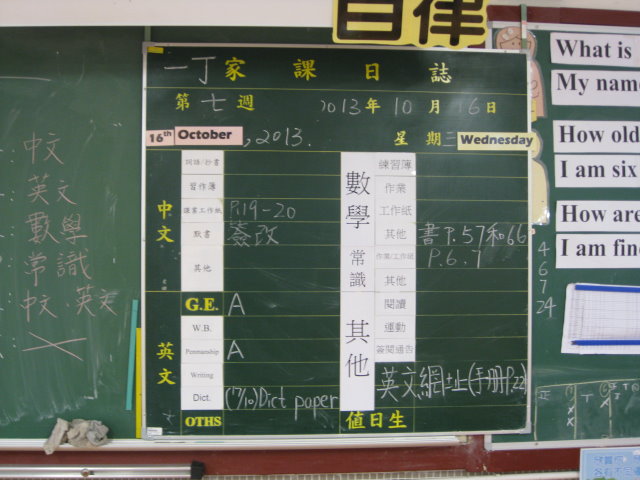 自律
一丁家課日誌
第七週 2013年10月16日
16th October, 2013. 星期二 Wednesday
中文
詞語/抄書
習作簿
課業工作紙 P.19-20
默書 簽改
其他
G.E. A
英文
W.B.
Penmanship A
Writing
Dict. (17/10)Dict paper
OTHS
數學
練習簿
作業
工作紙
其他 書P.57和66
常識
作業/工作紙 P.6.7
其他
其他
閱讀
運動
簽閱通告
英文網址(手冊P.22)
值日生
中文
英文
數學
常識
中文、英文
What is
My name
How old
I am six
How are
I am fine
4
6
7
24